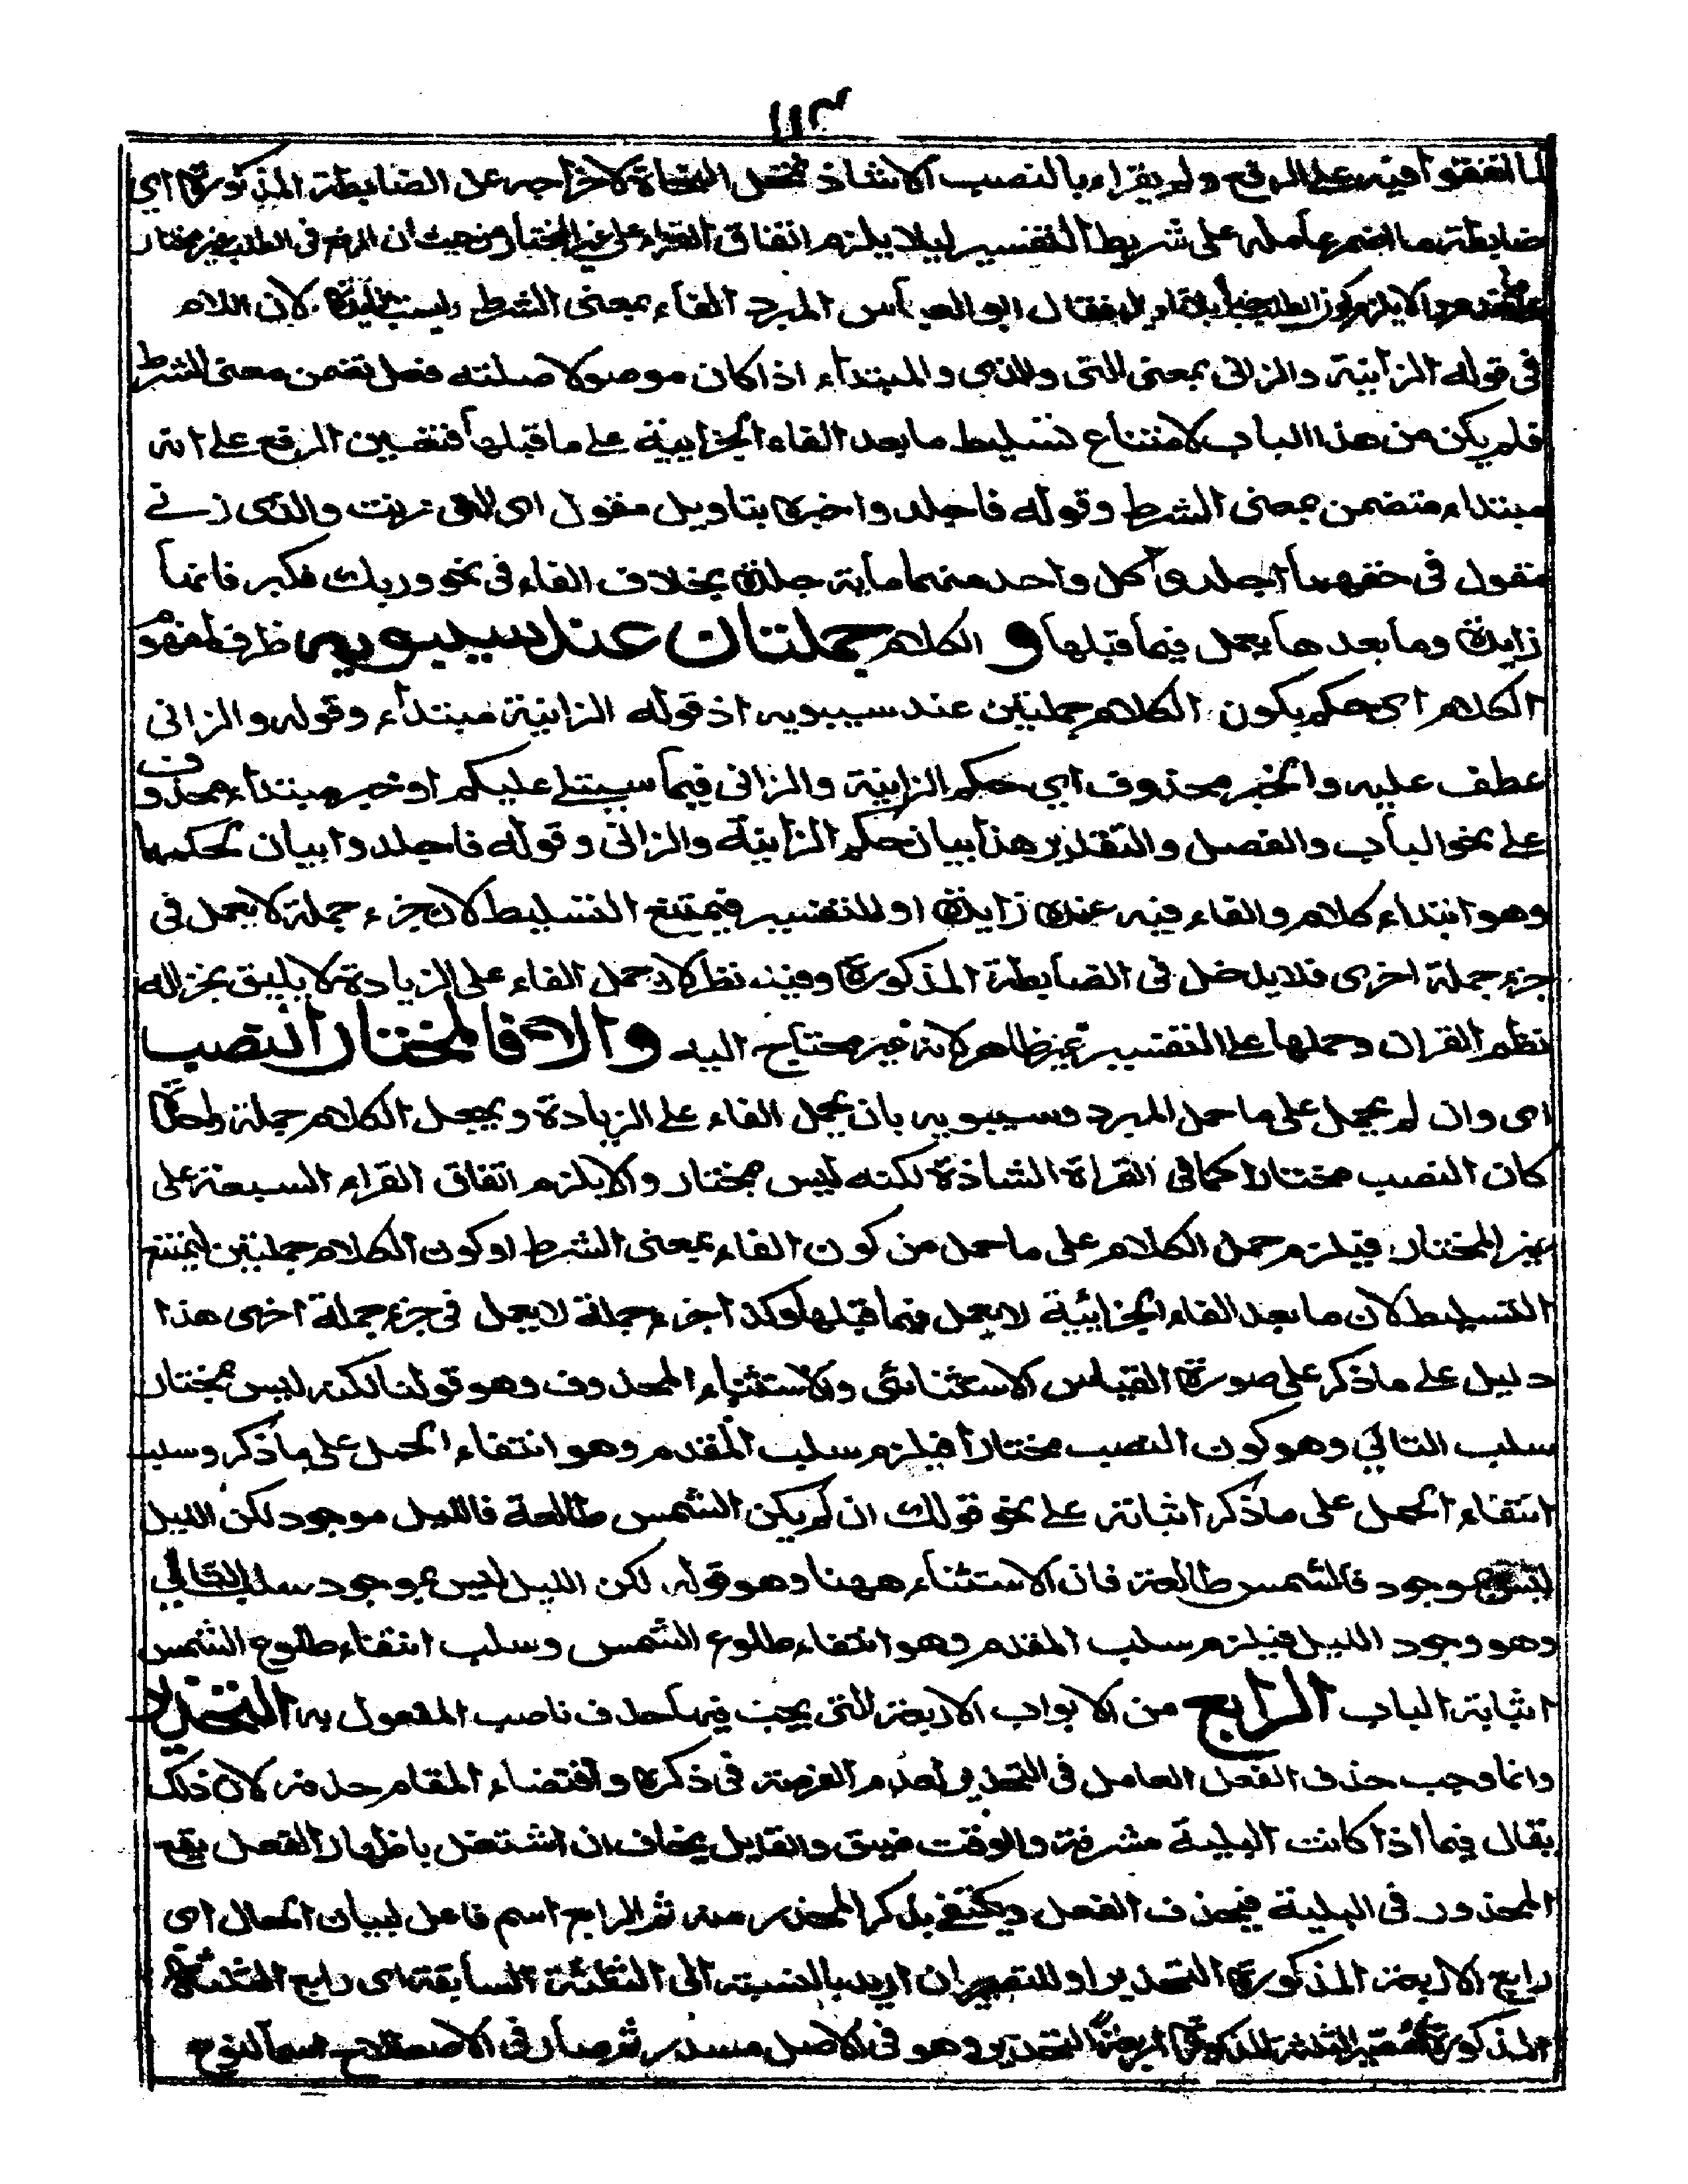 ١١٣
لما اتفقوا فيه على الرفع ولم يقراء بالنصب الا شاذ تمحل النحاة لاخراجه عن الضابطة المذكورة اي
ضابطة ما اضمر عامله على شريطة التفسير ليلا يلزم اتفاق القراء على غير المختار من حيث ان الرفع في الطلب غير مختار
فقال ابو العباس المبرد الفاء بمعنى الشرط وليست زايدة لان اللام
في قوله الزانية والزاني بمعنى التي والذي والمبتداء اذا كان موصولا صلته فعل تضمن معنى الشرط
فلم يكن من هذا الباب لامتناع تسليط ما بعد الفاء الجزايية على ما قبلها فتعين الرفع على انه
مبتداء متضمن بمعنى الشرط وقوله فاجلدوا خبره بتاويل مقول اى التى زنيت والذى زنى
مقول فى حقهما اجلدوا كل واحد منهما ماية جلدة بخلاف الفاء فى نحو وربك فكبر فانها
زايدة وما بعدها يعمل فيما قبلها و الكلام جملتان عند سيبويه ظرف لمفهوم
الكلام اى حكم بكون الكلام جملتين عند سيبويه اذ قوله الزانية مبتداء وقوله والزانى
عطف عليه والخبر محذوف اي حكم الزانية والزانى فيما سيتلى عليكم او خبر مبتداء محذوف
على نحو الباب والفصل والتقدير هذا بيان حكم الزانية والزانى وقوله فاجلدوا بيان لحكمها
وهو ابتداء كلام والفاء فيه عنده زايدة او للتفسير فيمتنع التسليط لان جزء جملة لا يعمل فى
جزء جملة اخرى فلا يدخل فى الضابطة المذكورة وفيه نظر لان حمل الفاء على الزيادة لا يليق بجزالة
نظم القران وحملها على التفسير غير ظاهر لانه غير محتاج اليه والا فالمختار النصب
اى وان لم يحمل على ما حمل المبرد وسيبويه بان يحمل الفاء على الزيادة ويجعل الكلام جملة واحدة
كان النصب مختارا كما فى القراة الشاذة لكنه ليس بمختار والا يلزم اتفاق القراء السبعة على
غير المختار فيلزم حمل الكلام على ما حمل من كون الفاء بمعنى الشرط او كون الكلام جملتين ليمتنع
التسليط لان ما بعد الفاء الجزائية لا يعمل فيما قبلها وكذا جزء جملة لا يعمل فى جزء جملة اخرى هذا
دليل على ما ذكر على صورة القياس الاستثنائى والاستثناء المحذوف وهو قولنا لكنه ليس بمختار
سلب التالي وهو كون النصب مختارا فيلزم سلب المقدم وهو انتفاء الحمل على ما ذكر وسلب
انتفاء الحمل على ما ذكر اثباته على نحو قولك ان لم يكن الشمس طالعة فالليل موجود لكن الليل
ليس بموجود فالشمس طالعة فان الاستثناء ههنا وهو قوله لكن الليل ليس بموجود سلب التالي
وهو وجود الليل فيلزم سلب المقدم وهو انتفاء طلوع الشمس وسلب انتفاء طلوع الشمس
اثباته الباب الرابع من الابواب الاربعة التى يجب فيها حذف ناصب المفعول به التحذير
وانما وجب حذف الفعل العامل فى التحذير لعدم الفرصة فى ذكره واقتضاء المقام حذفه لان ذلك
يقال فيما اذا كانت البلية مشرفة والوقت ضيق والقايل يخاف ان اشتغل باظهار الفعل يقع
المحذور فى البلية فيحذف الفعل ويكتفى بذكر المحذر منه ثم الرابع اسم فاعل لبيان الحال اى
رابع الاربعة المذكورة التحذير او للتصيير ان اريد بالنسبة الى الثلثة السابقة اى رابع الثلثة
المذكورة التحذير وهو فى الاصل مصدر ثم صار فى الاصطلاح اسما لنوع